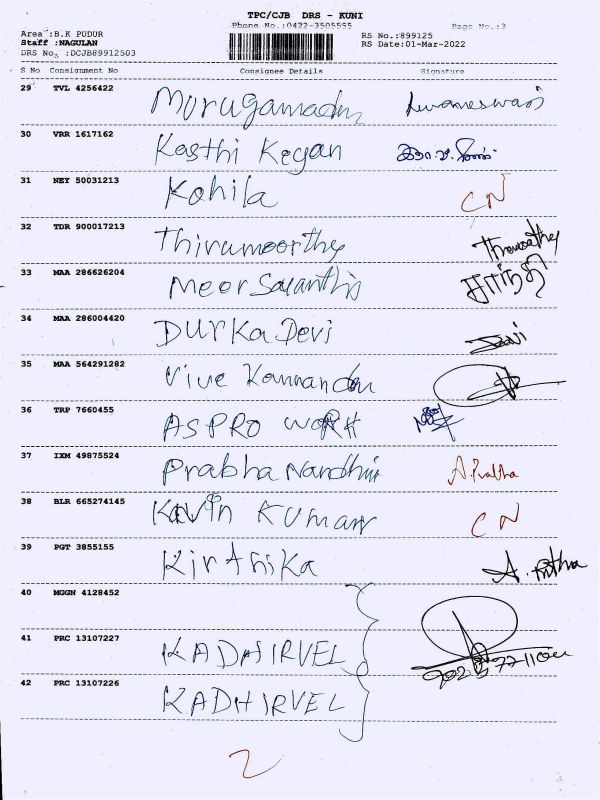 TPC/CJB DRS - KUNI
Phone No.:0422-3505555
Page No.:3
Area :B.K PUDUR
Staff :NAGULAN
DRS No. :DCJB89912503
RS No.:899125
RS Date:01-Mar-2022
S No Consignment No Consignee Details Signature
29 TVL 4256422
30 VRR 1617162 Kasthi Kegan
31 NEY 50031213 Kohila CN
32 TDR 900017213 Thirumoorthy
33 MAA 286626204 சாந்தி
34 MAA 286004420 DURKA DEVI
35 MAA 564291282
36 TRP 7660455 ASPRO WORH
37 IXM 49875524 Prabha Nandhini A. Prabha
38 BLR 665274145 Kavin KUMAR CN
39 PGT 3855155 Kirthika
40 MGGN 4128452
41 PRC 13107227 KADHIRVEL
42 PRC 13107226 KADHIRVEL
2